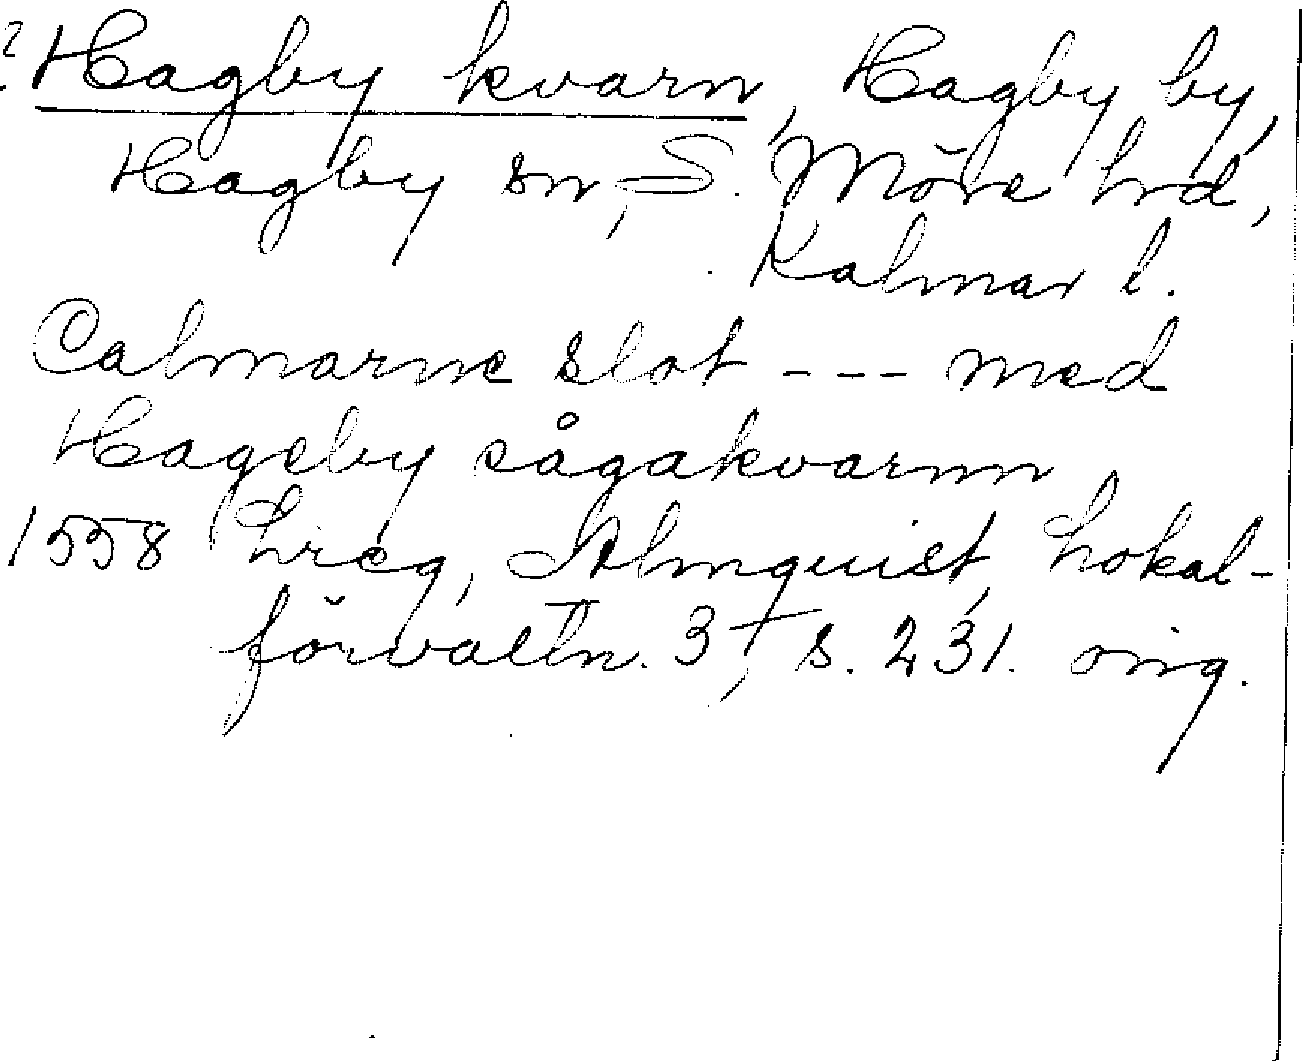 ? Hagby kvarn, Hagby by,
Hagby sn, S. Möre hd,
Kalmar l.
Calmarne slot --- med
Hageby sågakvarnn
1558 Lreg, Almquist, Lokal-
förvaltn. 3, s. 231. orig.